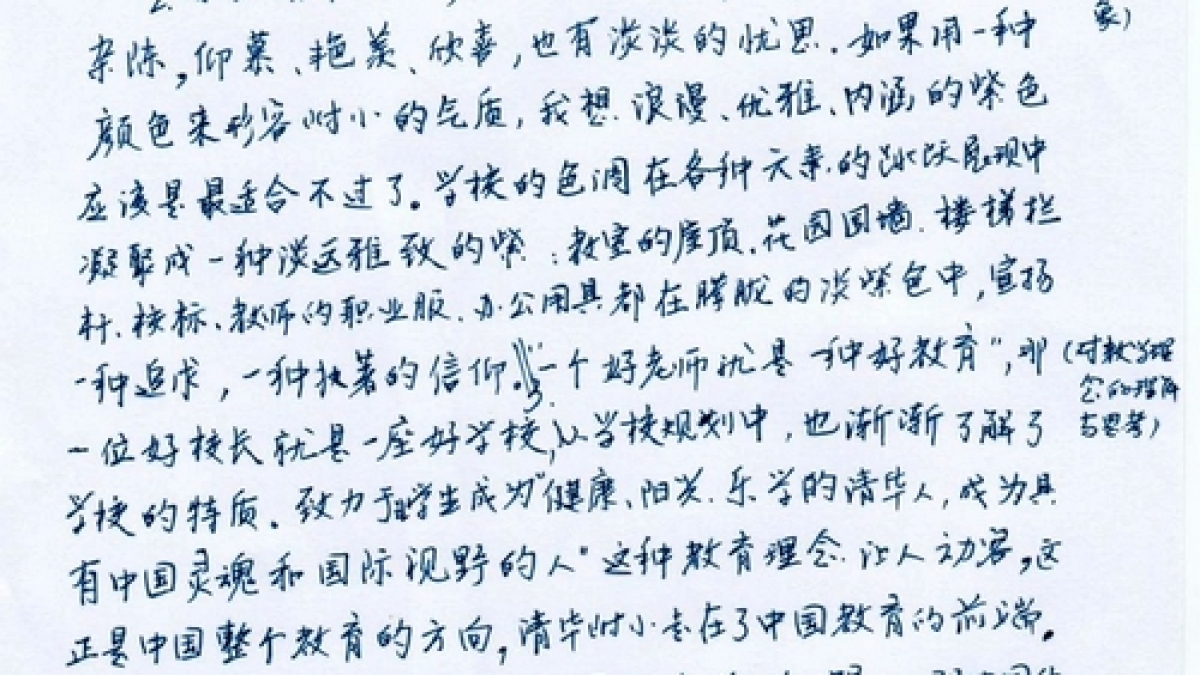 象）
杂陈，仰慕、艳羡、欣喜，也有淡淡的忧思。如果用一种
颜色来形容附小的气质，我想浪漫、优雅、内涵的紫色
应该是最适合不过了。学校的色调在各种元素的跳跃展现中
凝聚成一种淡远雅致的紫：教室的屋顶、花园围墙、楼梯栏
杆、校标、教师的职业服、办公用具都在朦胧的淡紫色中，宣扬
一种追求，一种执著的信仰。“一个好老师就是一种好教育”，那
（对教学理
念的理解
与思考）
一位好校长就是一座好学校，从学校规划中，也渐渐了解了
学校的特质。致力于学生成为“健康、阳光、乐学的清华人，成为具
有中国灵魂和国际视野的人”这种教育理念让人动容，这
正是中国整个教育的方向，清华附小走在了中国教育的前端。